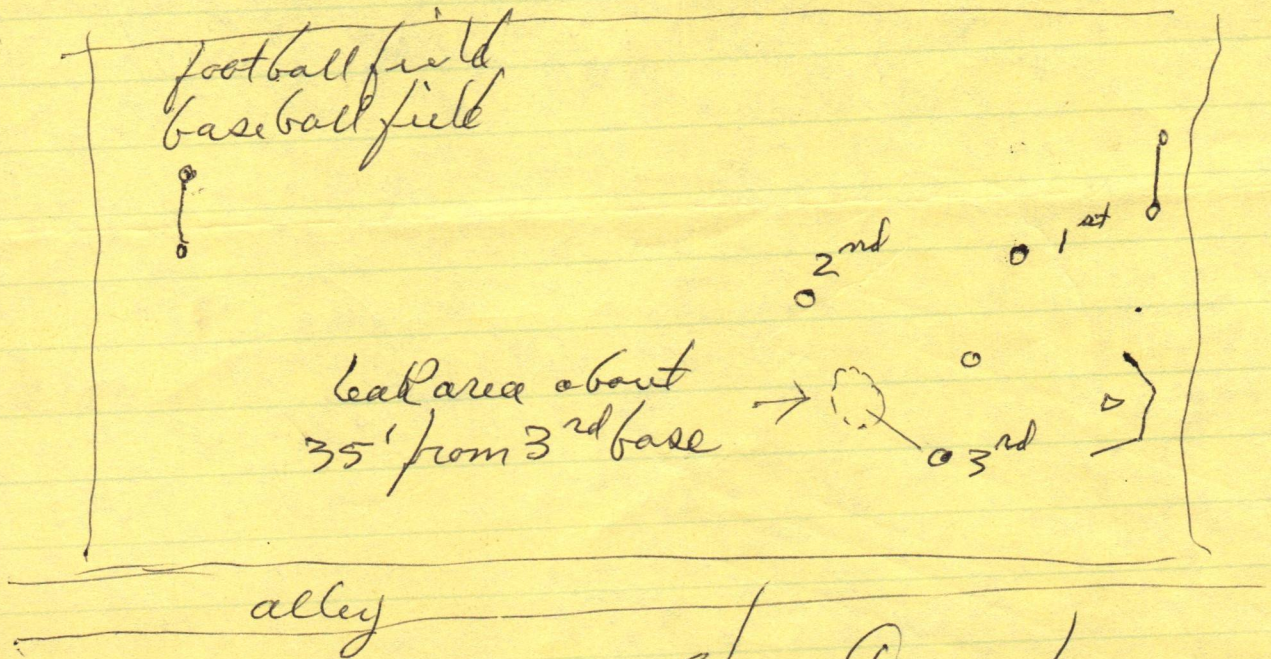 football field
baseball field
1st
2nd
leak area about
35' from 3rd base
3rd
alley